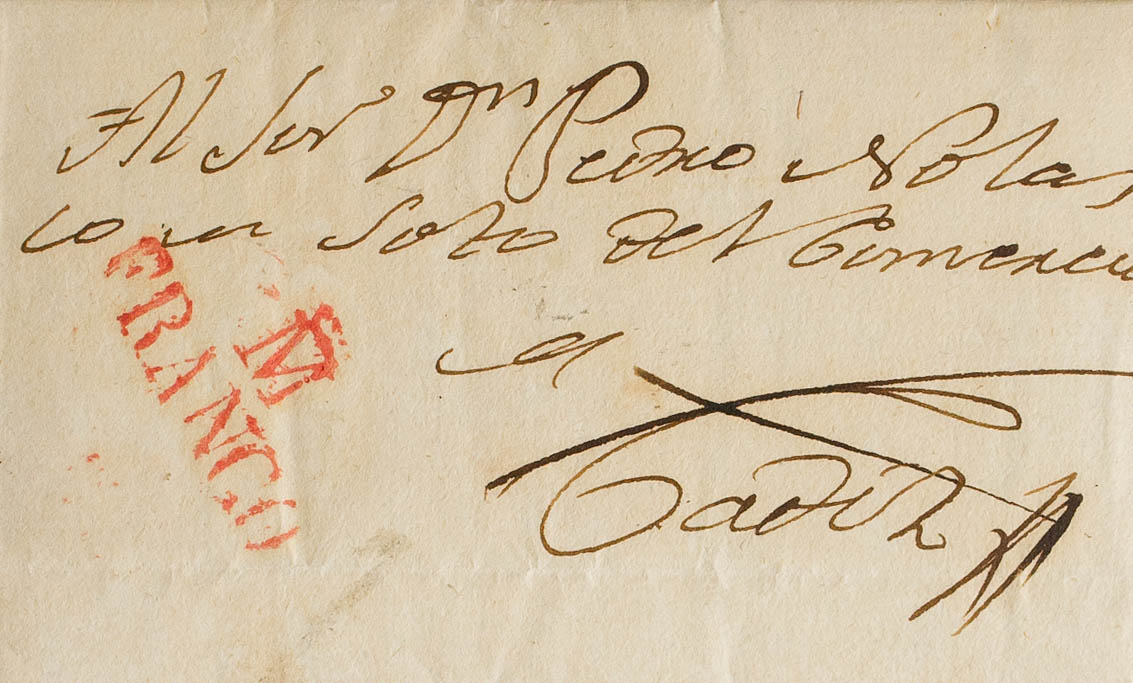 Al Sor Dn Pedro Nolas
co Soto del Comercio
M
FRANCO
Cadiz